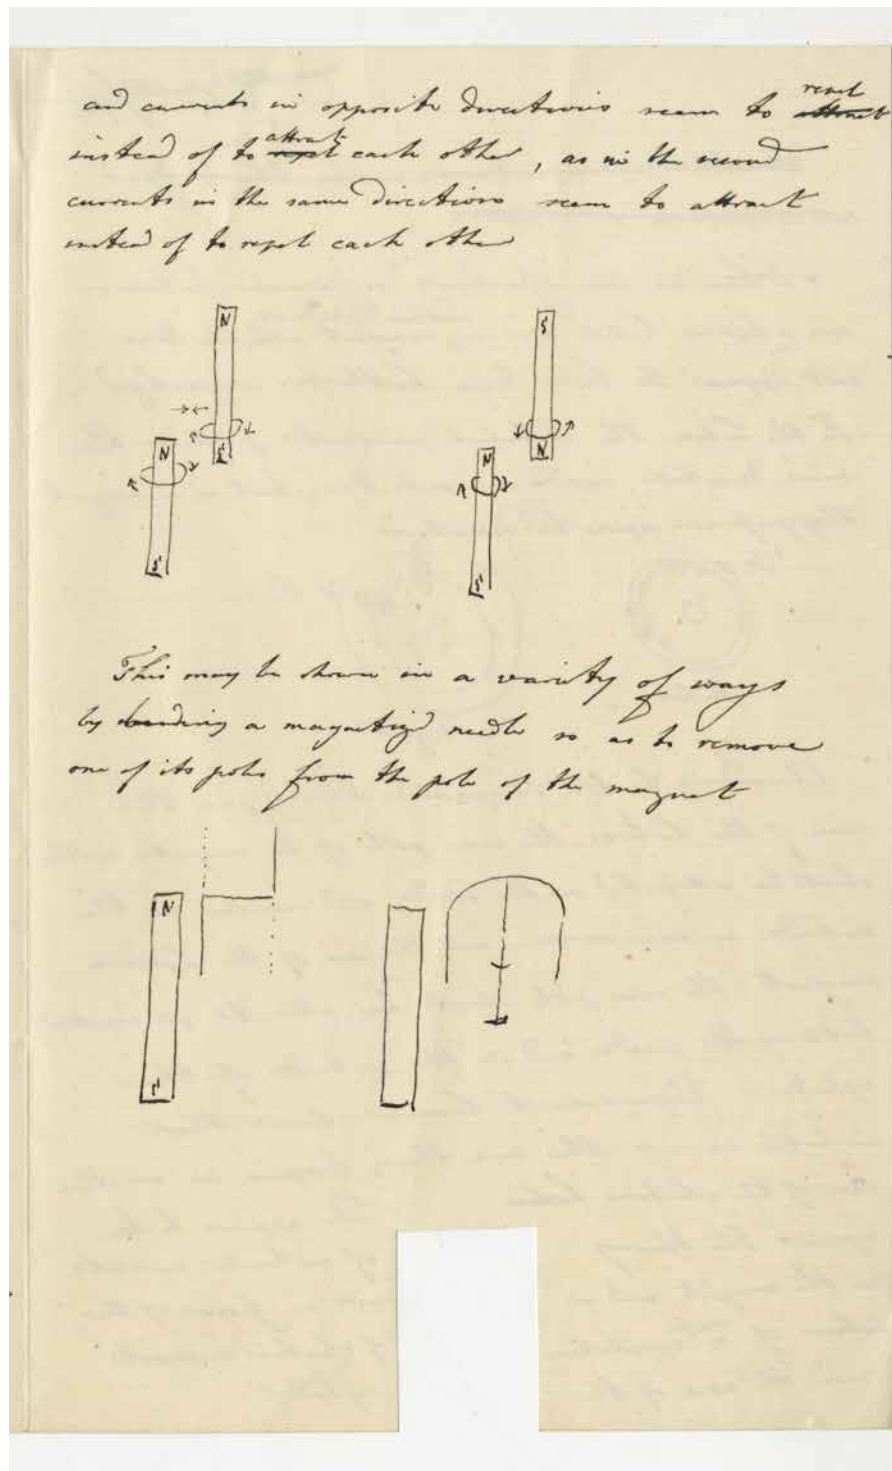 repel
and currents in opposite directions seem to attract
attract
instead of to repel each other, as in the second
currents in the same directions seem to attract
instead of to repel each other
N S
N S N N
S S
This may be shown in a variety of ways
by bending a magnetized needle so as to remove
one of its poles from the pole of the magnet
N
S